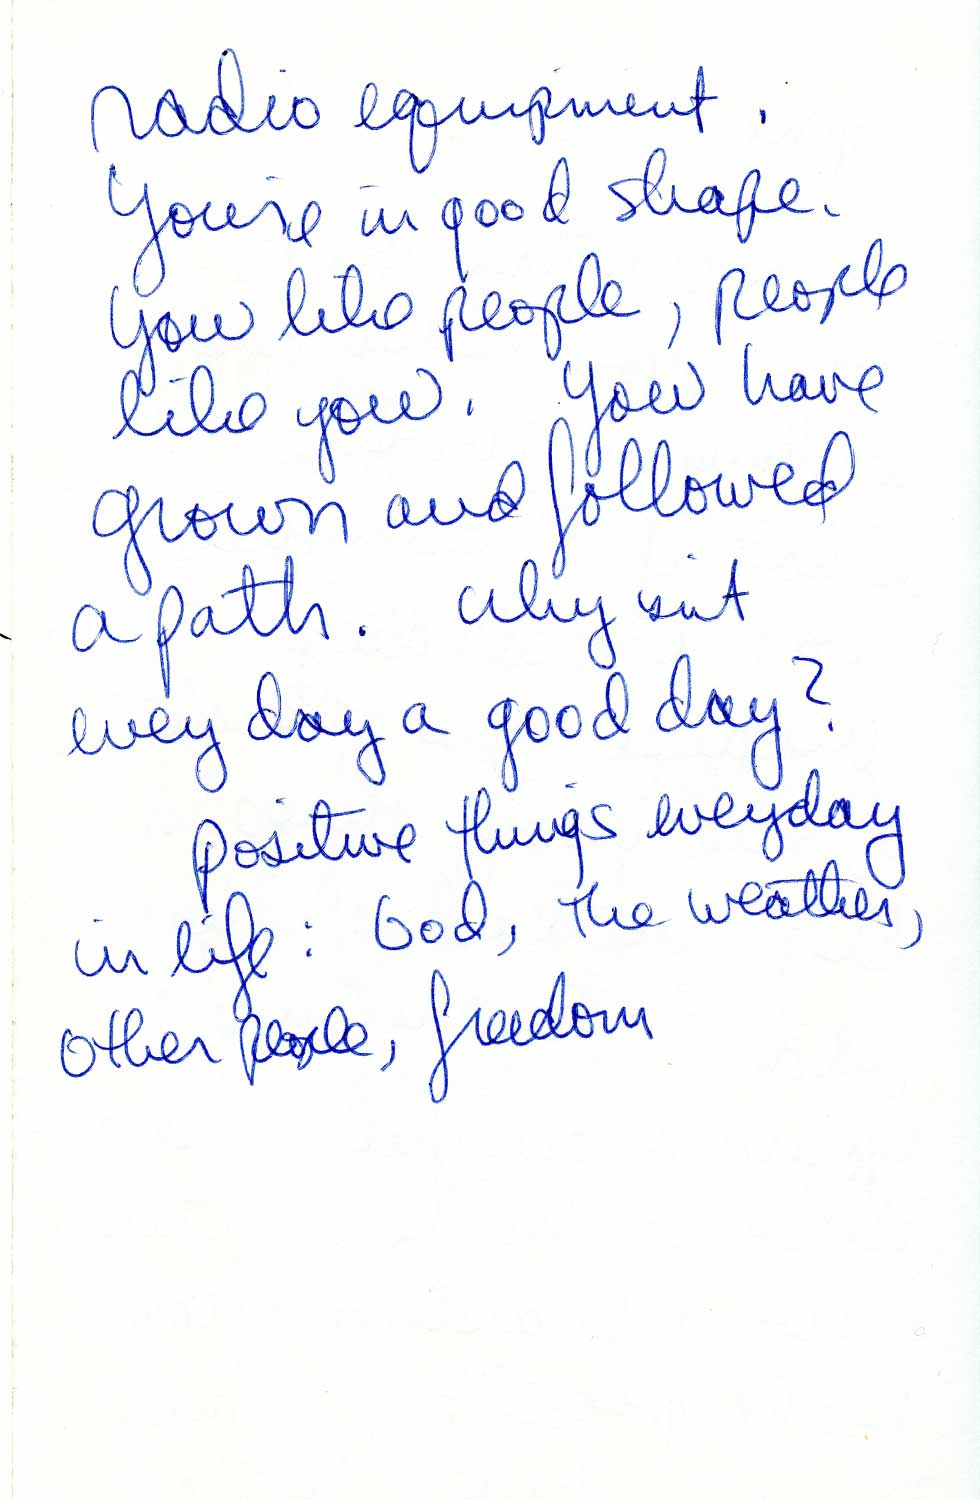 radio equipment.
You're in good shape.
You like people, people
like you. You have
grown and followed
a path. Why isn't
every day a good day?
Positive things everyday
in life: God, the weather,
other people, freedom